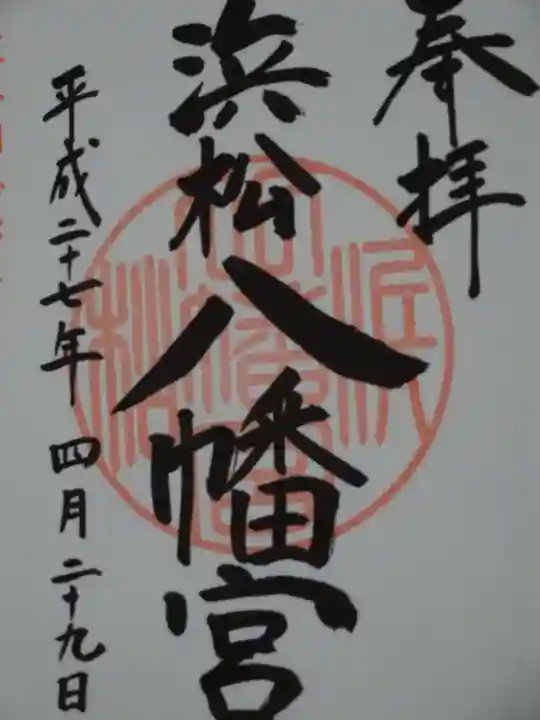 奉拝
浜松八幡宮
平成二十七年四月二十九日